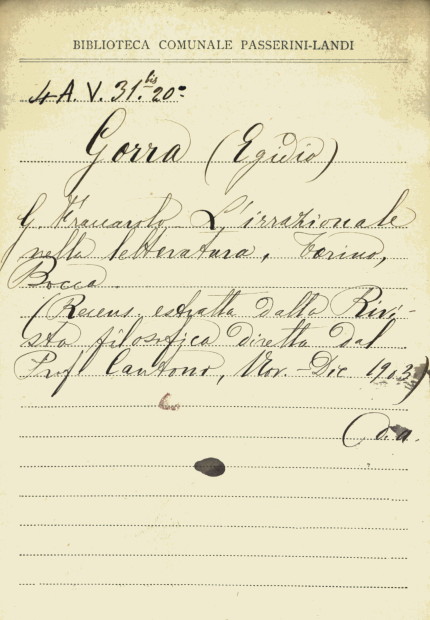 BIBLIOTECA COMUNALE PASSERINI-LANDI
4 A. V. 31.bis 20=
Gorra (Egidio)
G. Fraccarolo L'irrazionale
nella letteratura, Torino,
Bocca.
(Recens. estratta dalla Rivi-
sta filosofica diretta dal
Prof Cantono, Nov.-Dic 1903)